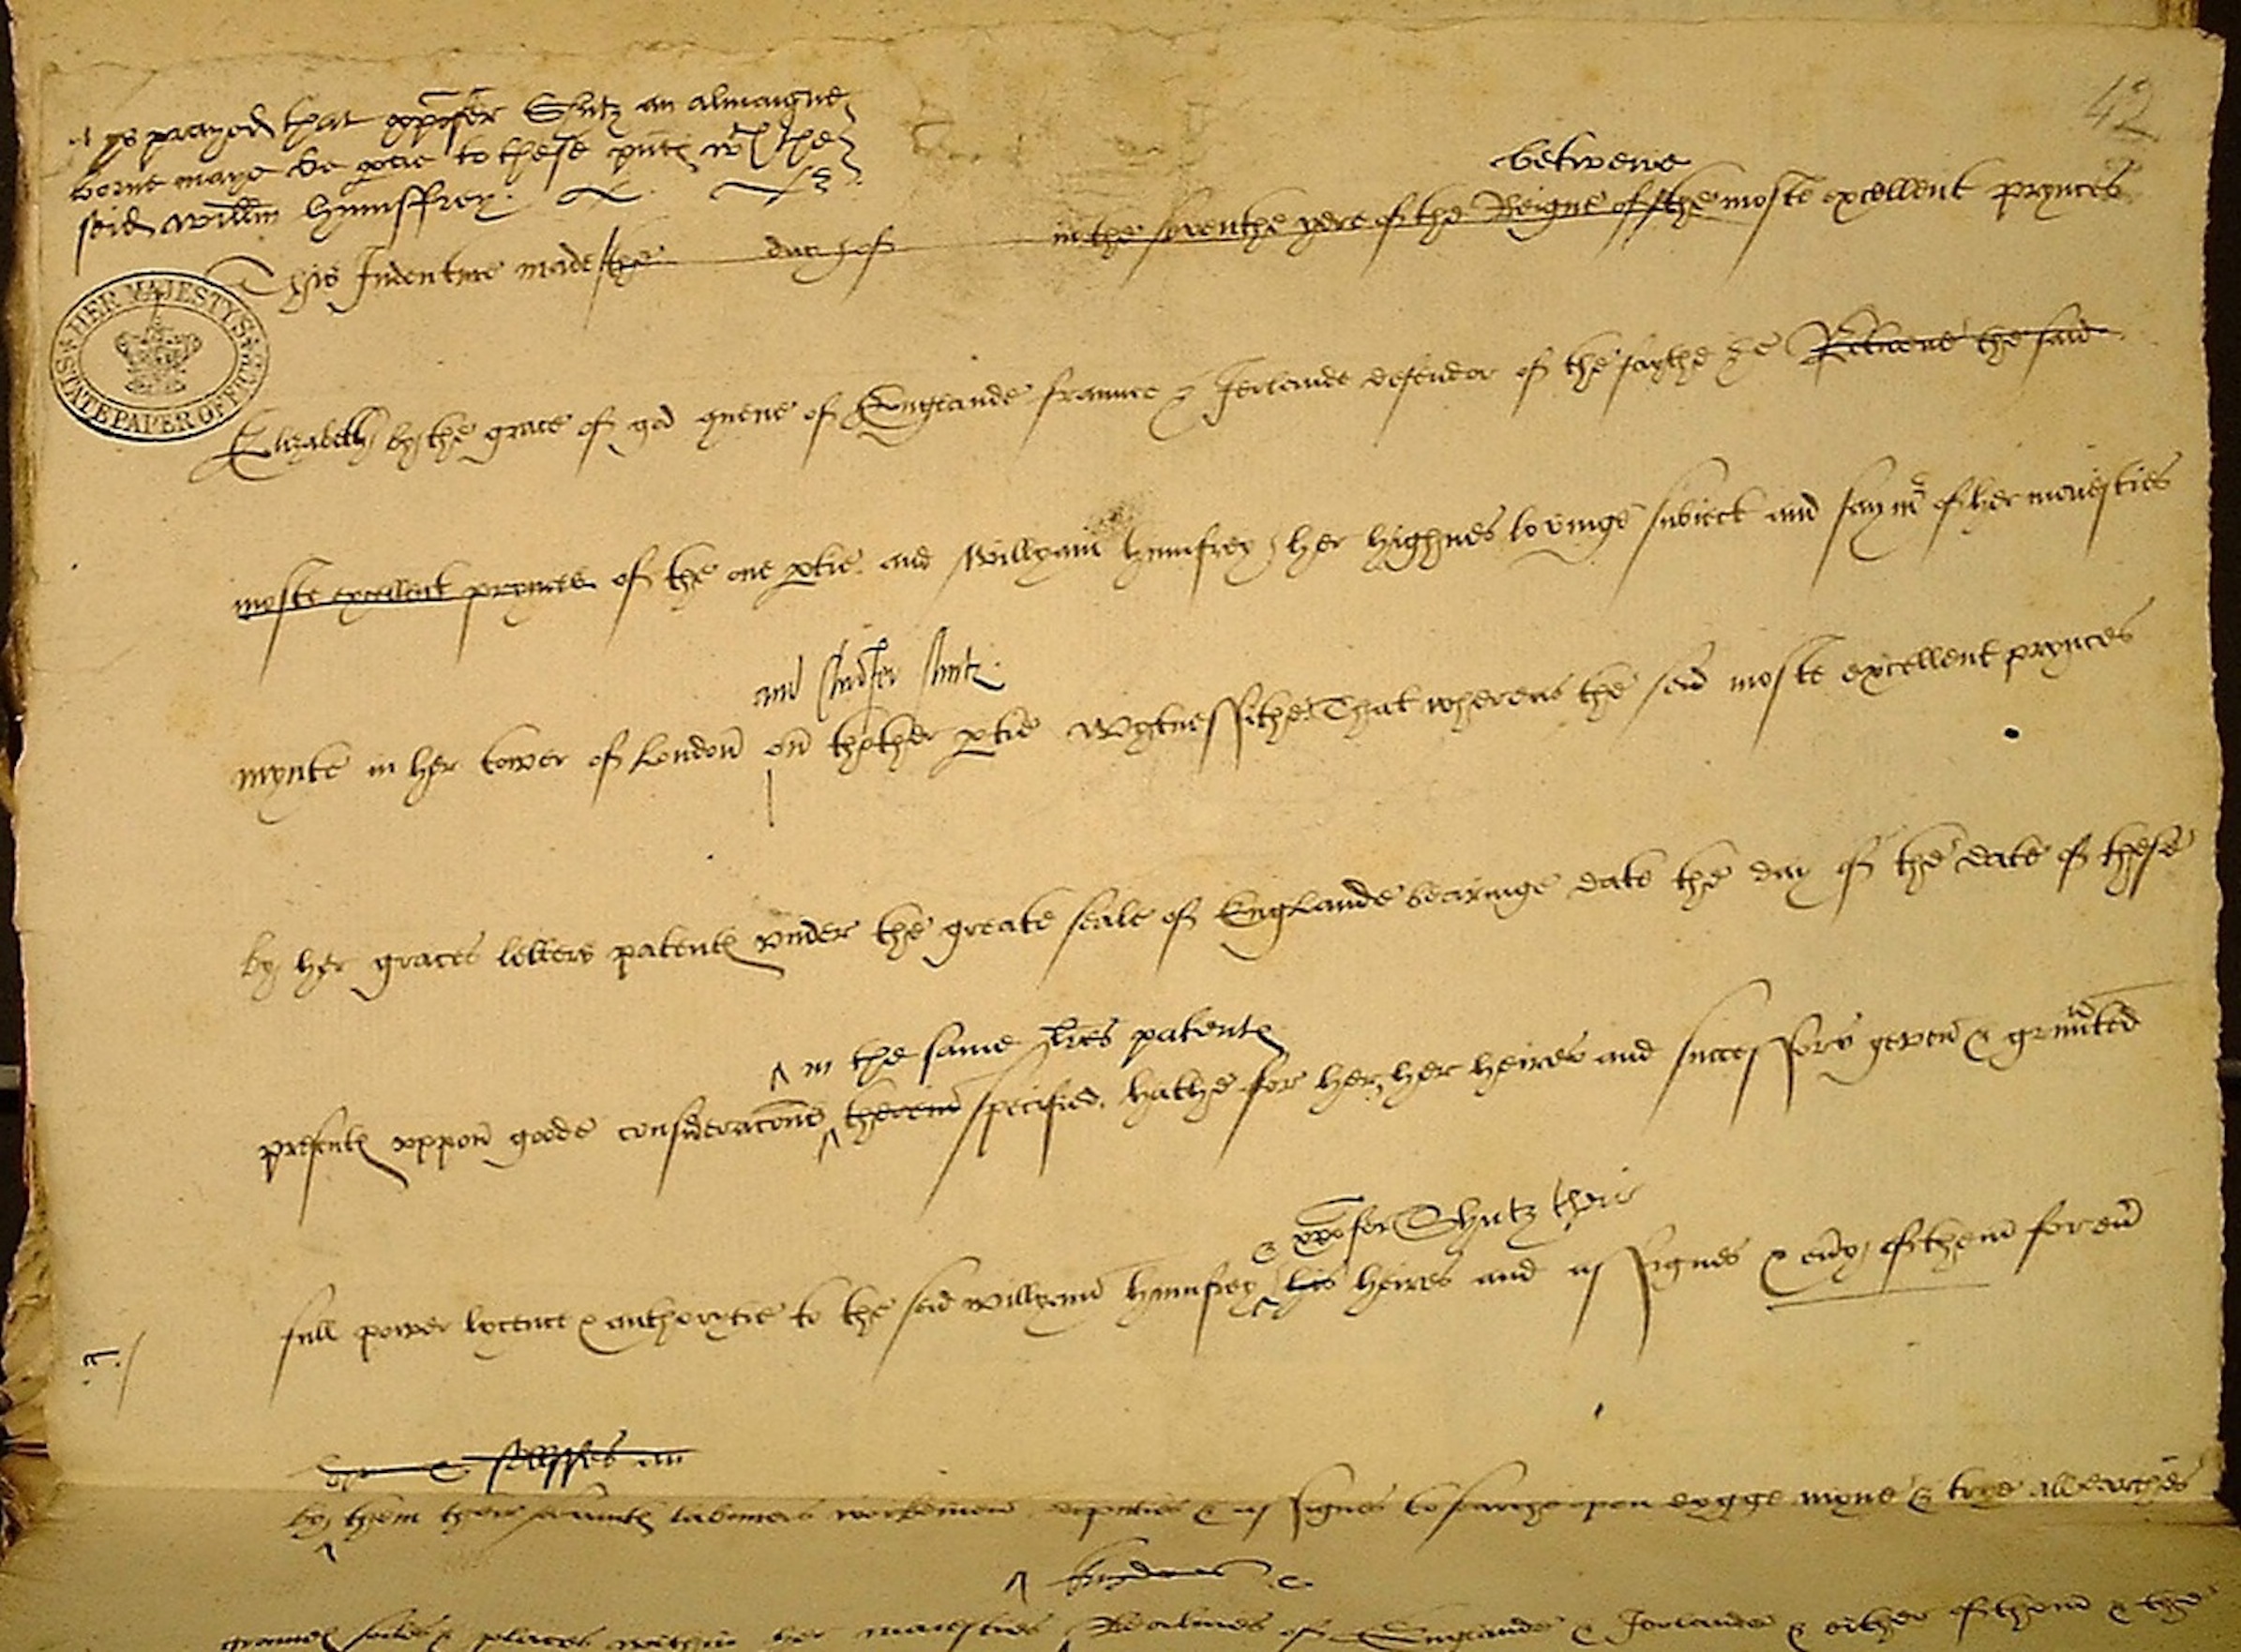 42
it ys prayed that xpōfer Shutz an almaigne
borne maye be ptie to these pntes wth the
seid Willm̄ Humffrey.
betwene
This Indenture made the day of in the seventhe yere of the Reigne of the moste excellent prynces
HER MAJESTY'S STATE PAPER OFFICE
Elizabeth by the grace of god quene of Englande fraunce & Ierlande defendor of the faythe &c Betwene the said
moste excellent prynces of the one ptie. and Willyam Humfrey her highnes lovinge subiect and say mr of her maiesties
and Christofer Shutz
mynte in her tower of London on thother ptie Wytnessithe That whereas the seid moste excellent prynces
by her graces letters patents vnder the greate seale of Englande bearinge date the day of the date of these
in the same lres patents
presents vppon goode consideracons therein specified. hathe for her, her heires and successors geven & graunted
& xpofer Shutz their
full power lycence & authorytie to the seid Willyam Humfrey his heires and assignes & eūy of them for eū
by them their servants laborers workemen deputies & assignes to searche open dygge myne & trye all earthes
grounds soiles & places within her maiesties Realmes of Englande & Ierlande & either of them & the